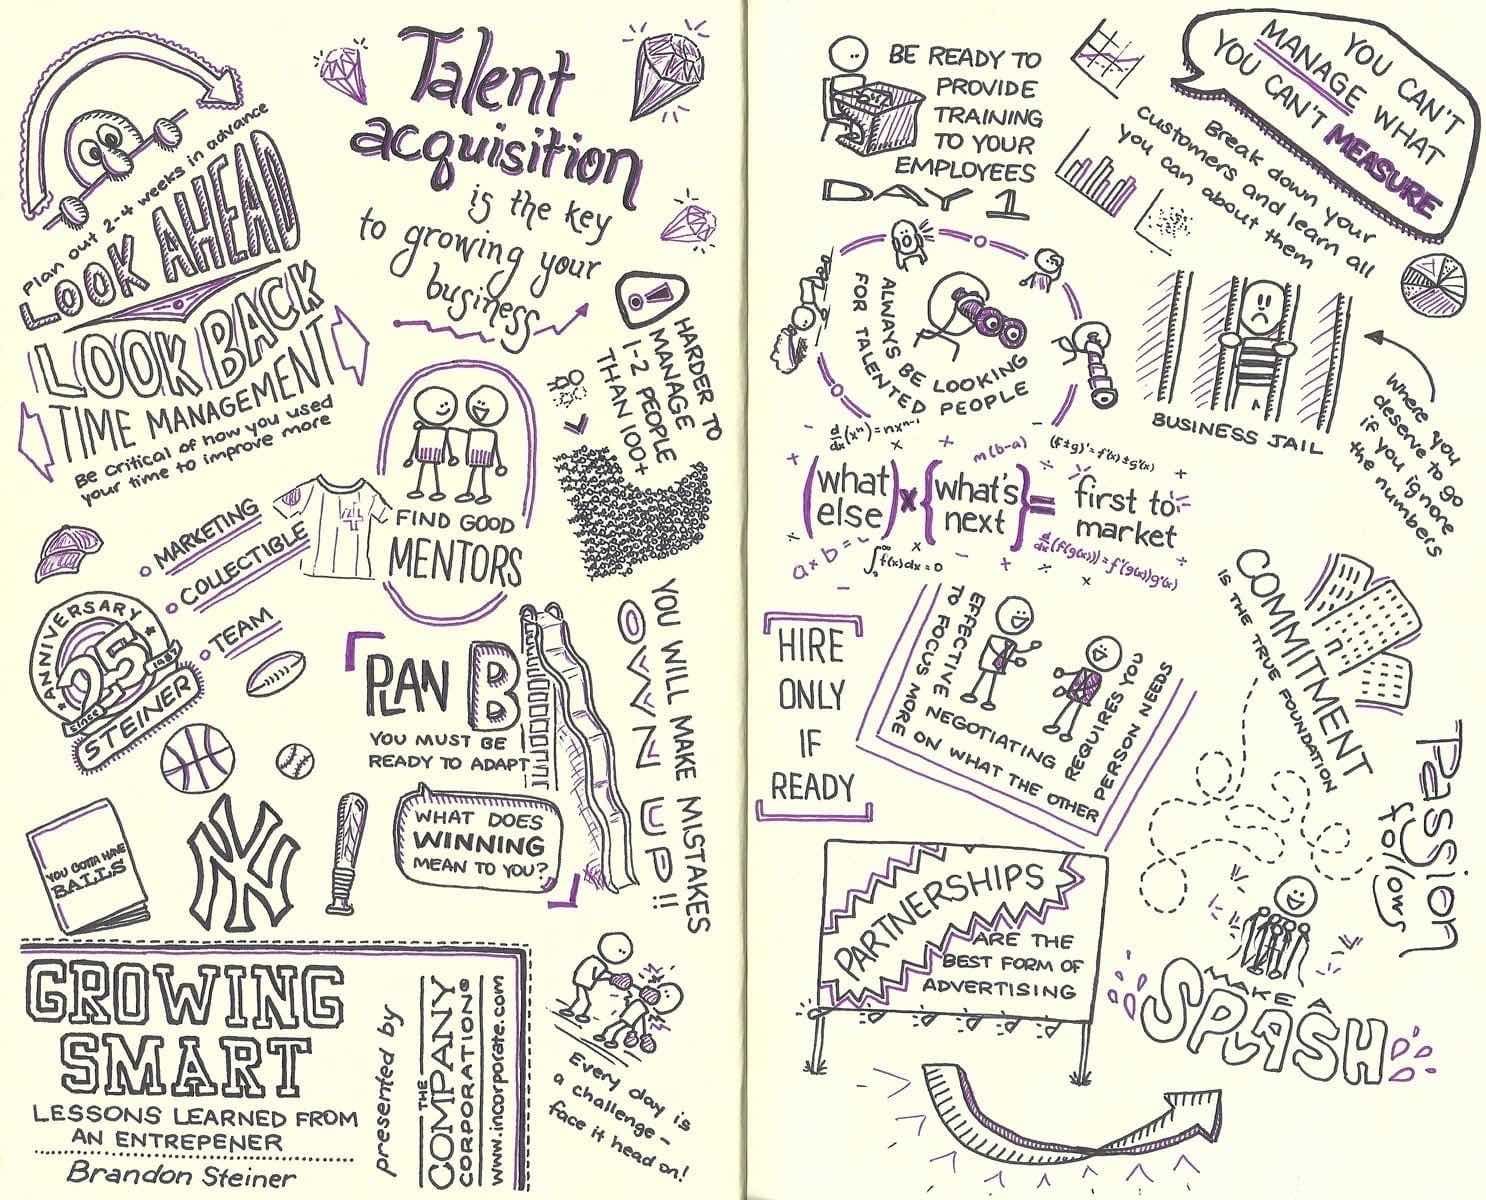 Plan out 2-4 weeks in advance
LOOK AHEAD
LOOK BACK
TIME MANAGEMENT
Be critical of how you used
your time to improve more
Talent
acquisition
is the key
to growing your
business
HARDER TO
MANAGE
1-2 PEOPLE
THAN 100+
FIND GOOD
MENTORS
MARKETING
COLLECTIBLE
TEAM
ANNIVERSARY
25
since 1987
STEINER
PLAN B
YOU MUST BE
READY TO ADAPT
WHAT DOES
WINNING
MEAN TO YOU?
YOU WILL MAKE MISTAKES
OWN UP!!
YOU GOTTA HAVE
BALLS
NY
GROWING
SMART
LESSONS LEARNED FROM
AN ENTREPENER
Brandon Steiner
presented by
THE
COMPANY
CORPORATION®
www.incorporate.com
Every day is
a challenge -
face it head on!
BE READY TO
PROVIDE
TRAINING
TO YOUR
EMPLOYEES
DAY 1
YOU CAN'T
MANAGE WHAT
YOU CAN'T MEASURE
Break down your
customers and learn all
you can about them
ALWAYS BE LOOKING
FOR TALENTED PEOPLE
BUSINESS JAIL
where you
deserve to go
if you ignore
the numbers
d/dx(xⁿ)=nxⁿ⁻¹
m(b-a)
(f±g)'=f'(x)±g'(x)
(what else) x {what's next} = first to market
a×b=
∫f(x)dx=0
d/dx(f(g(x)))=f'(g(x))g'(x)
HIRE
ONLY
IF
READY
EFFECTIVE NEGOTIATING REQUIRES YOU
TO FOCUS MORE ON WHAT THE OTHER PERSON NEEDS
COMMITMENT
IS THE TRUE FOUNDATION
Passion
follows
PARTNERSHIPS
ARE THE
BEST FORM OF
ADVERTISING
MAKE A
SPLASH